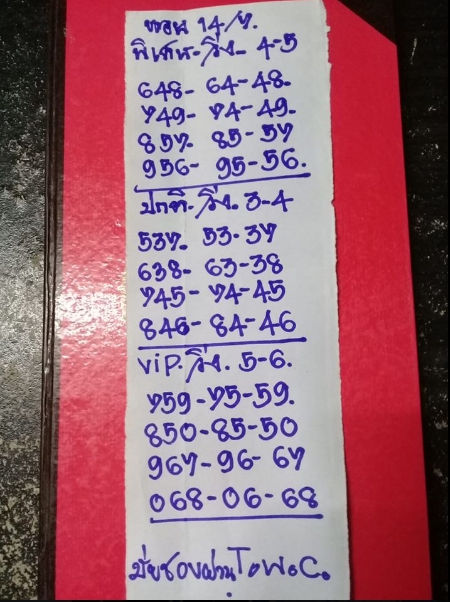 ฮอน 14/7.
พิเศษ-วิ่ง- 4-5
648- 64-48.
749- 74-49.
857. 85-57
956- 95-56.
ปกติ-วิ่ง. 3-4
537. 53-37
638- 63-38
745- 74-45
846-84-46
ViP.วิ่ง. 5-6.
759-75-59.
850-85-50
967-96-67
068-06-68
T.W.C.